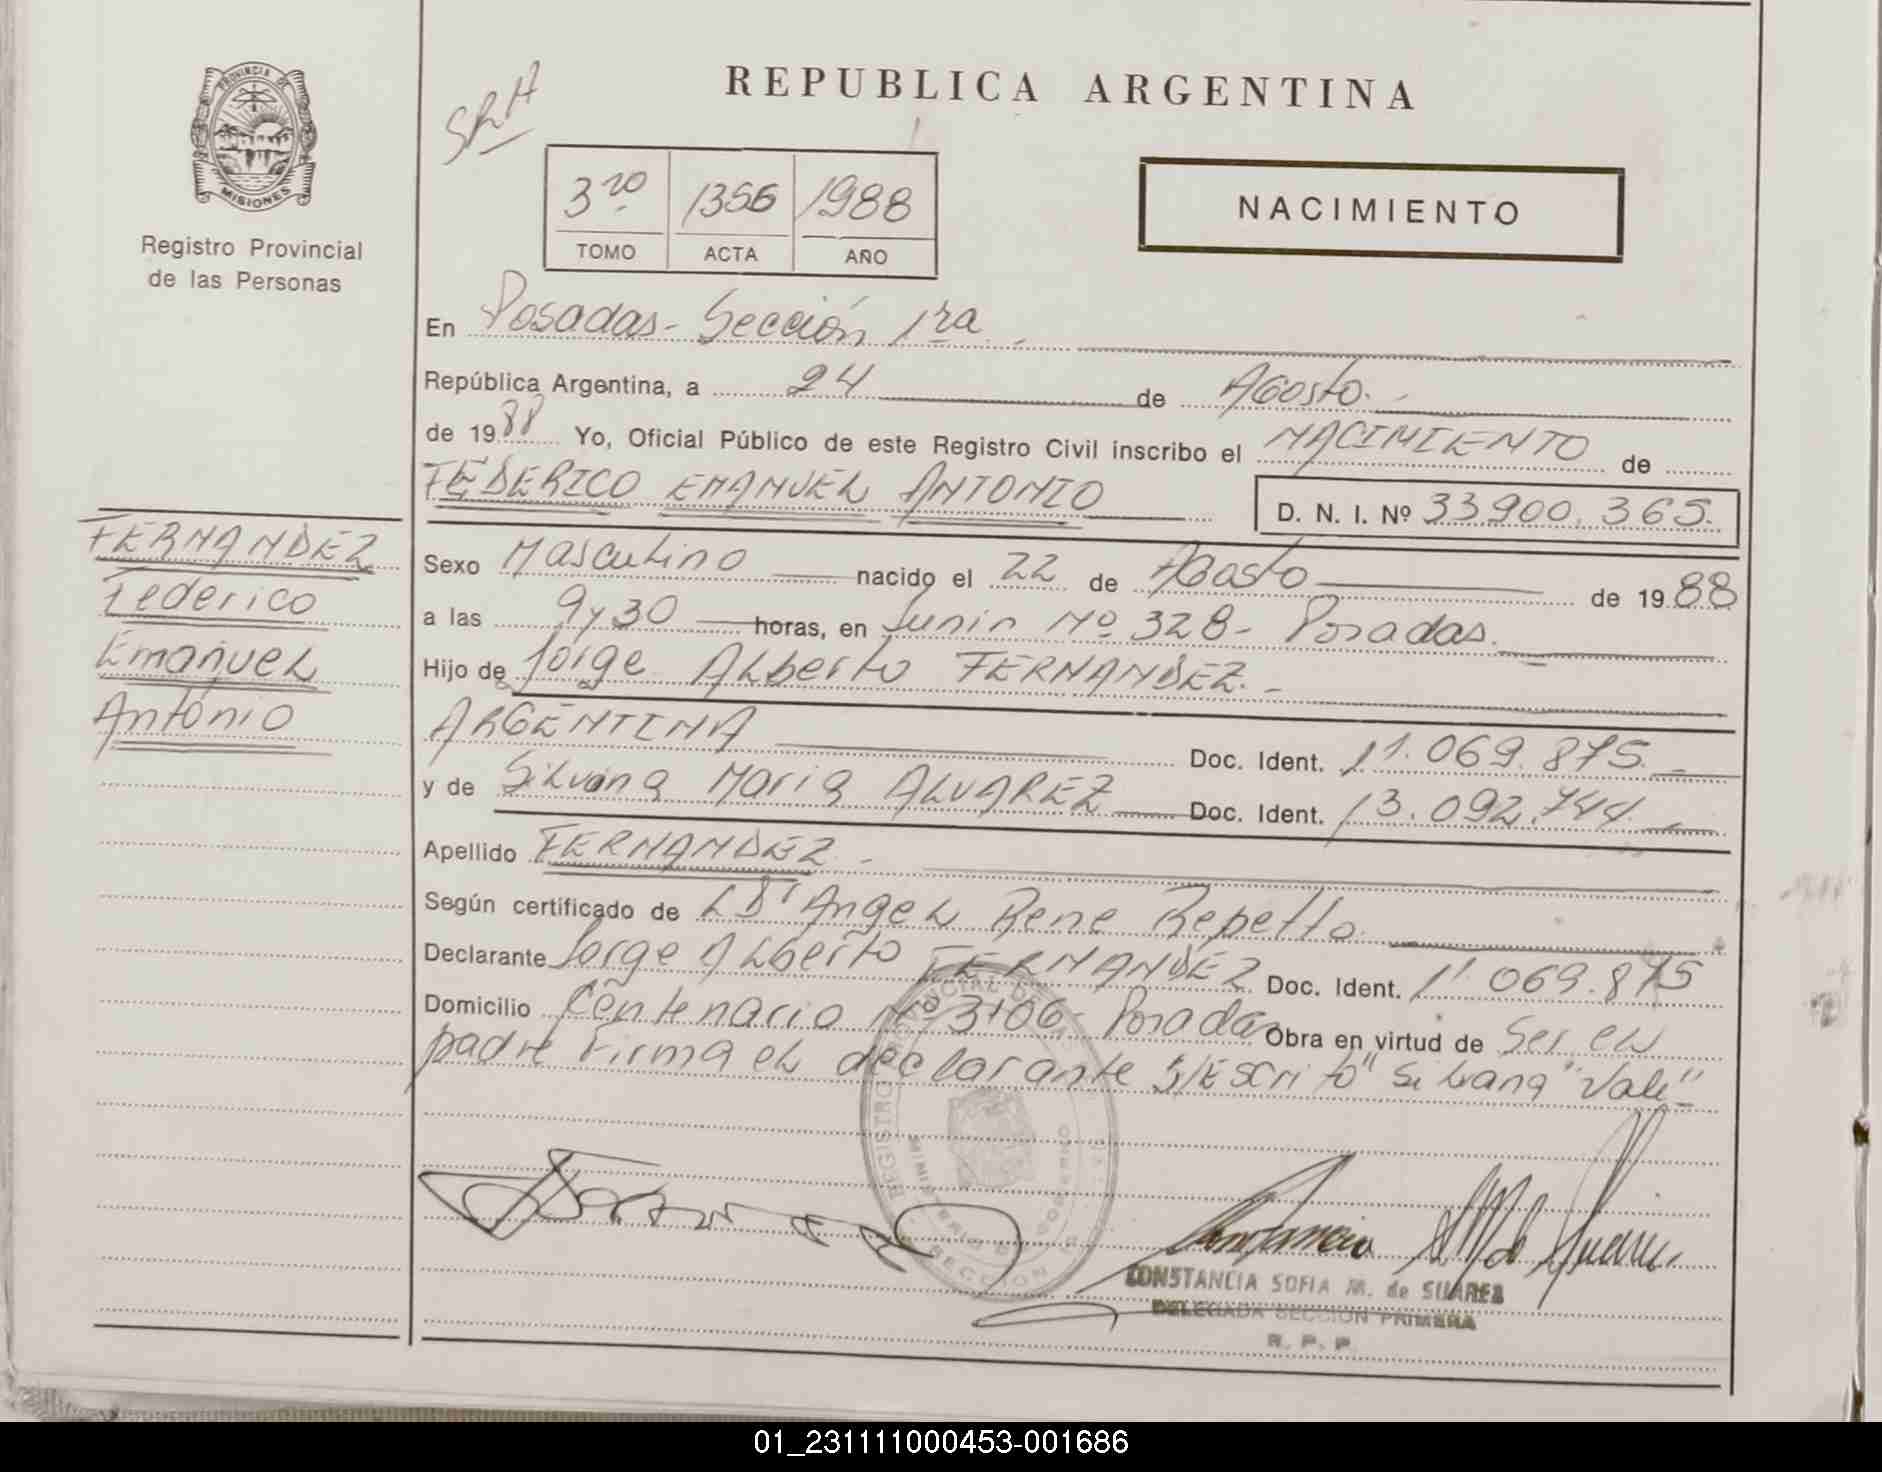 REPUBLICA ARGENTINA
PROVINCIA DE MISIONES
Registro Provincial
de las Personas
3ro 1356 1988
TOMO ACTA AÑO
NACIMIENTO
En Posadas - Sección 1ra.
República Argentina, a 24 de Agosto.
de 1988 Yo, Oficial Público de este Registro Civil inscribo el NACIMIENTO de
FEDERICO EMANUEL ANTONIO D. N. I. Nº 33.900.365.
FERNANDEZ
Federico
Emanuel
Antonio
Sexo Masculino nacido el 22 de Agosto de 1988
a las 9 y 30 horas, en Junin Nº 328 - Posadas.
Hijo de Jorge Alberto FERNANDEZ. -
ARGENTINA Doc. Ident. 11.069.875. -
y de Silvana Maria ALVAREZ Doc. Ident. 13.092.744. -
Apellido FERNANDEZ. -
Según certificado de Angel Rene Repetto.
Declarante Jorge Alberto FERNANDEZ Doc. Ident. 11.069.875
Domicilio Centenario Nº Posadas Obra en virtud de Ser el
padre Firma el declarante S/Escrito "Silvana" Vale"
REGISTRO PROVINCIAL DE LAS
MINISTERIO DE GOBIERNO
SECCION
CONSTANCIA SOFIA M. de SUAREZ
DELEGADA SECCION PRIMERA
R. P. P.
01_231111000453-001686